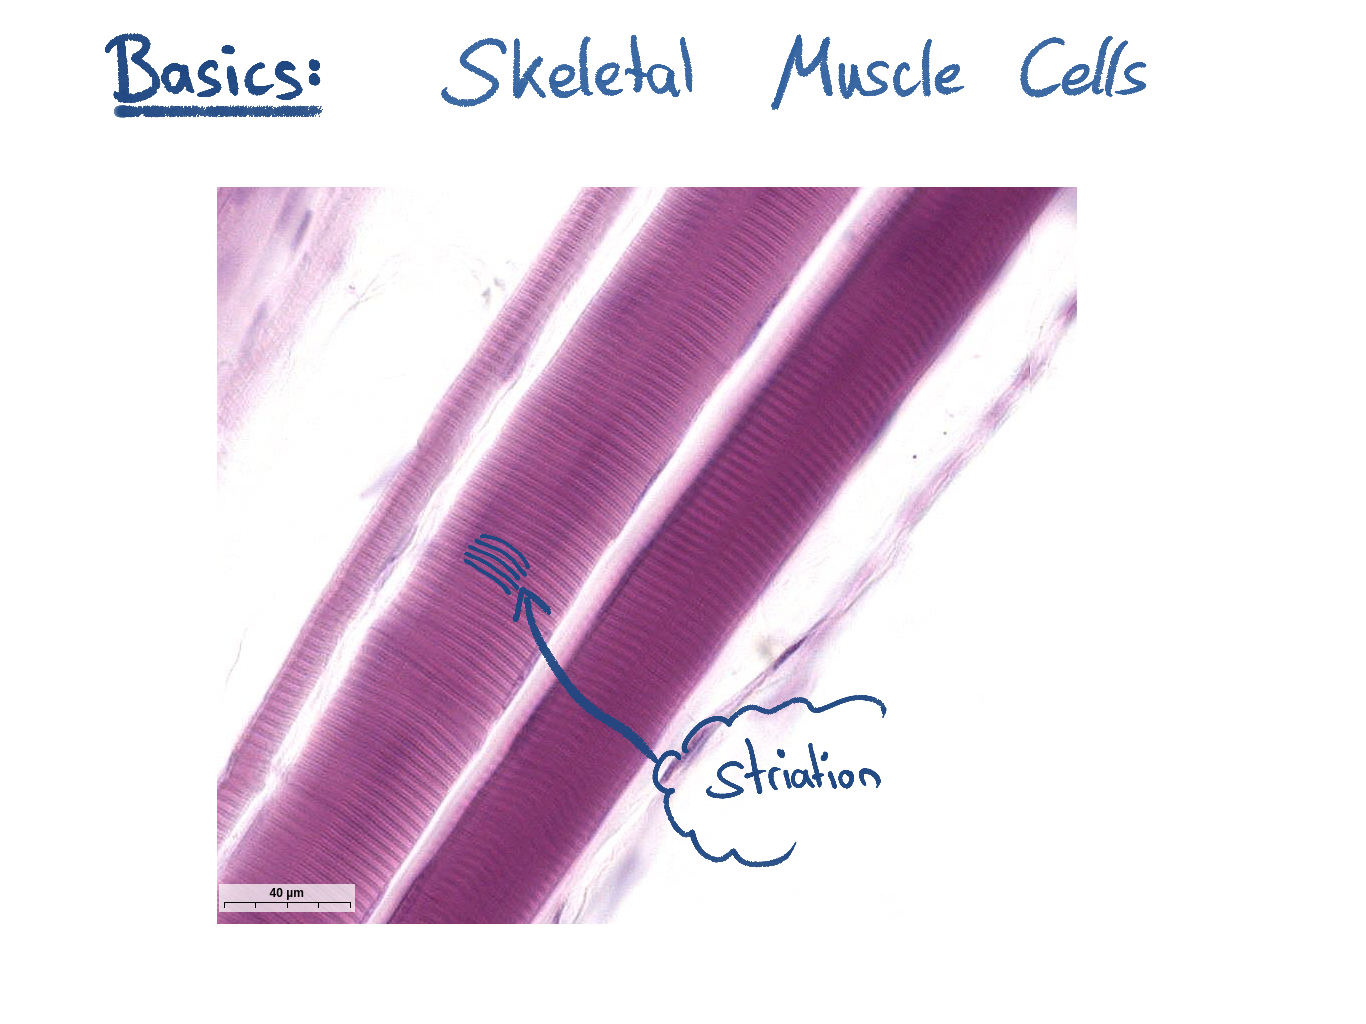 Basics: Skeletal Muscle Cells
striation
40 µm